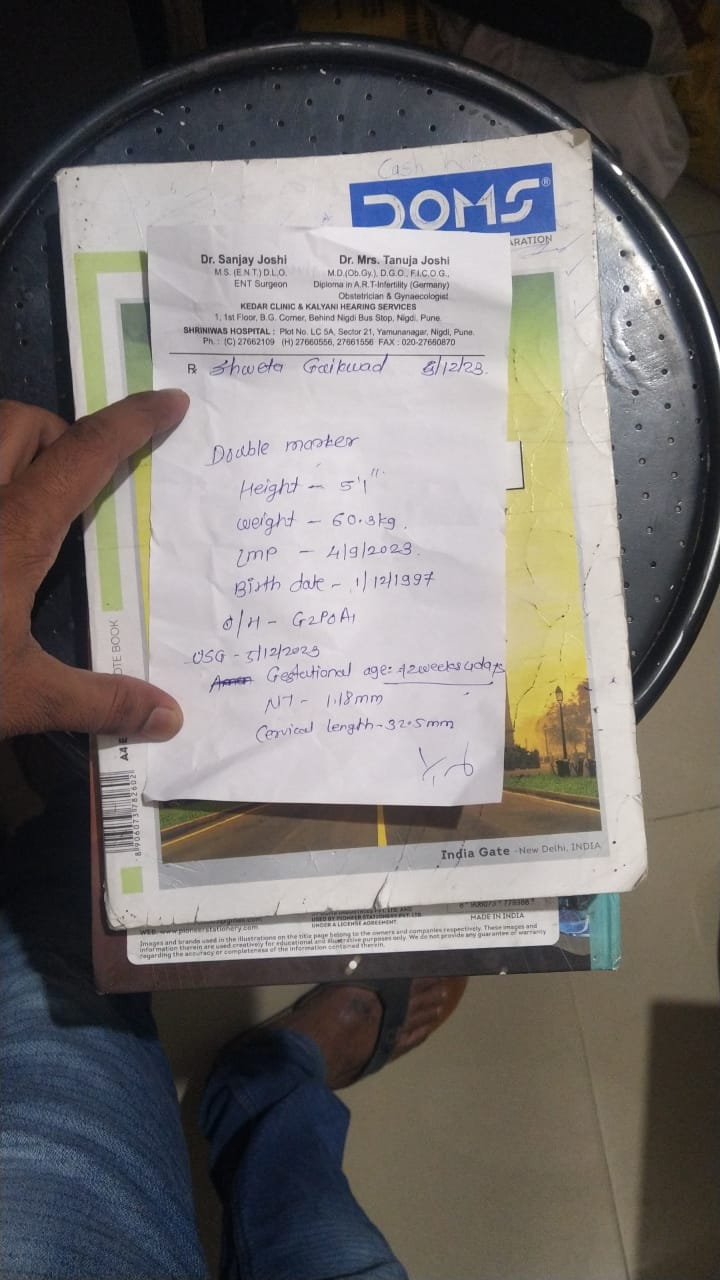 Cash
DOMS®
ARATION
Dr. Sanjay Joshi
M.S. (E.N.T.) D.L.O.
ENT Surgeon
Dr. Mrs. Tanuja Joshi
M.D.(Ob.Gy.), D.G.O., F.I.C.O.G.,
Diploma in A.R.T-Infertility (Germany)
Obstetrician & Gynaecologist
KEDAR CLINIC & KALYANI HEARING SERVICES
1, 1st Floor, B.G. Corner, Behind Nigdi Bus Stop, Nigdi, Pune.
SHRINIWAS HOSPITAL : Plot No. LC 5A, Sector 21, Yamunanagar, Nigdi, Pune.
Ph. : (C) 27662109 (H) 27660556, 27661556 FAX : 020-27660870
℞ Shweta Gaikwad /12/23.
Double marker
Height - 5'1".
weight - 60.3kg.
LMP - 4/9/2023.
Birth date - 1/12/1997
O/H - G2P0A1
USG - 5/12/2023
Gestational age: 12weeks 4days
NT - 1.18mm
Cervical length - 32.5mm
OTE BOOK
A4
8906073782602
India Gate - New Delhi, INDIA
USED BY PIONEER STATIONERY PVT. LTD.
UNDER A LICENSE AGREEMENT.
MADE IN INDIA
WEB: www.pioneerstationery.com
Images and brands used in the illustrations on the title page belong to the owners and companies respectively. These images and
information therein are used creatively for educational and illustrative purposes only. We do not provide any guarantee or warranty
regarding the accuracy or completeness of the information contained therein.